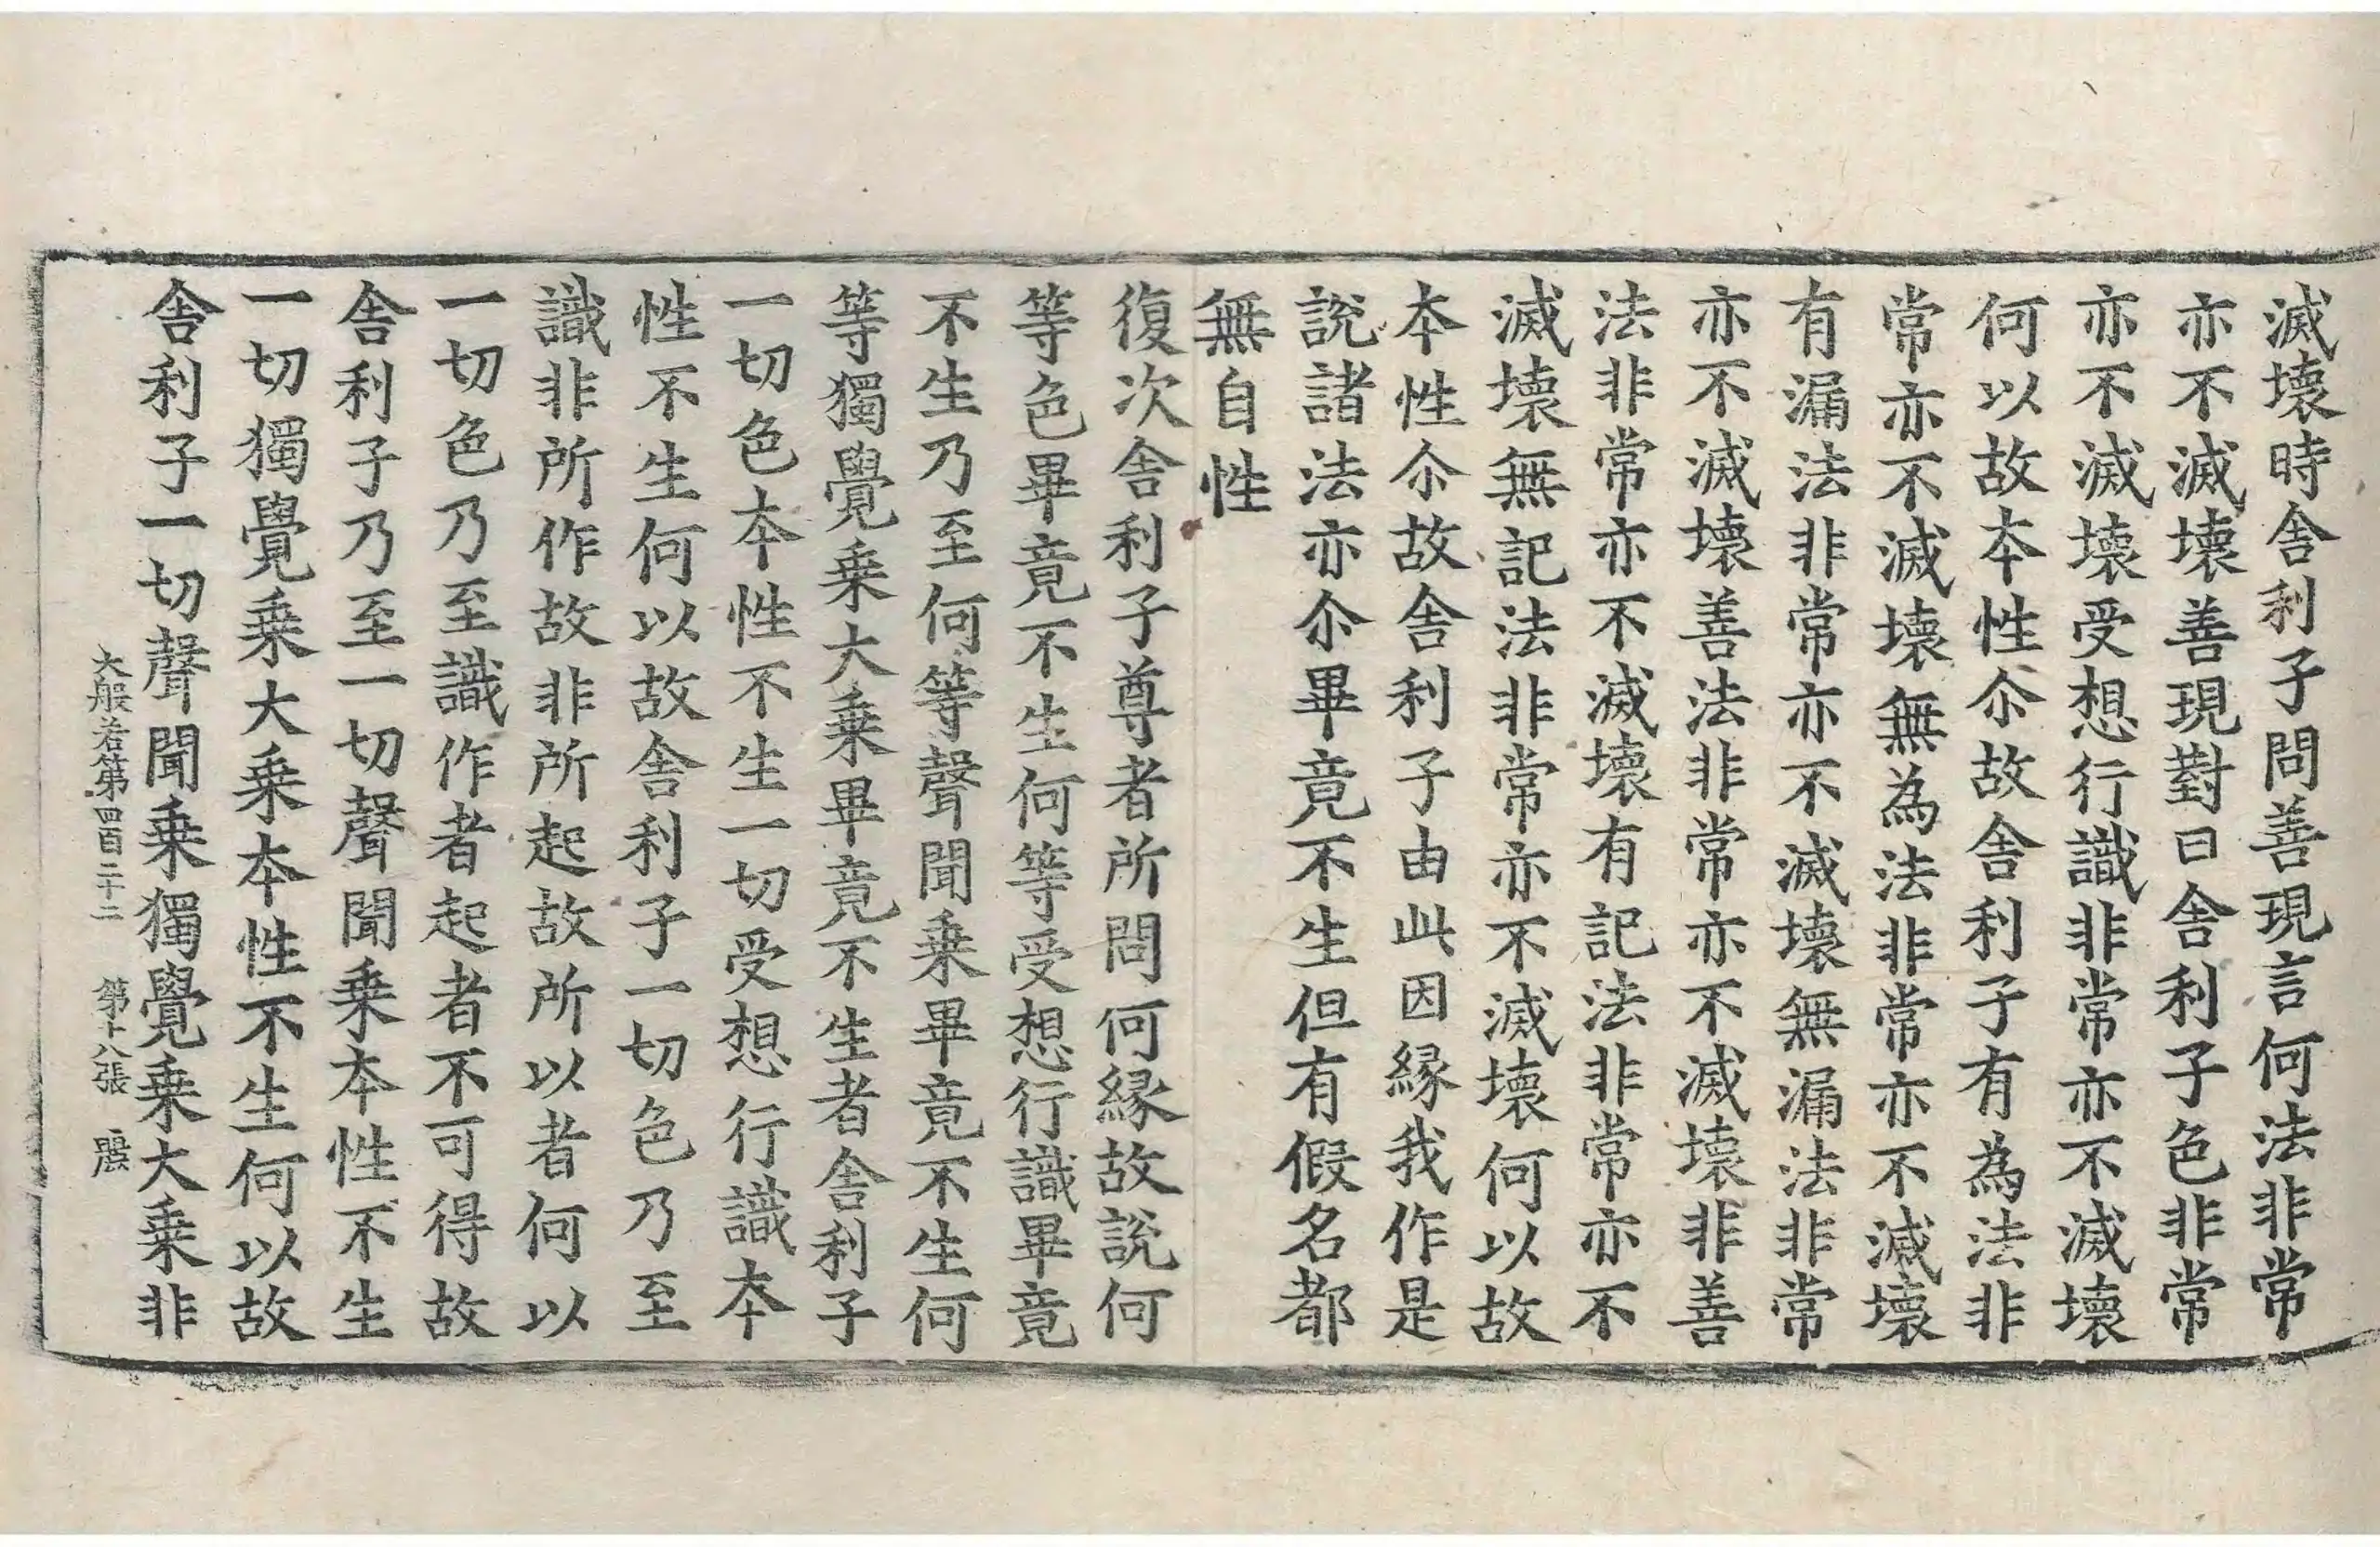 滅壞時舍利子問善現言何法非常
亦不滅壞善現對曰舍利子色非常
亦不滅壞受想行識非常亦不滅壞
何以故本性尒故舍利子有為法非
常亦不滅壞無為法非常亦不滅壞
有漏法非常亦不滅壞無漏法非常
亦不滅壞善法非常亦不滅壞非善
法非常亦不滅壞有記法非常亦不
滅壞無記法非常亦不滅壞何以故
本性尒故舍利子由此因緣我作是
說諸法亦尒畢竟不生但有假名都
無自性
復次舍利子尊者所問何緣故說何
等色畢竟不生何等受想行識畢竟
不生乃至何等聲聞乗畢竟不生何
等獨覺乗大乗畢竟不生者舍利子
一切色本性不生一切受想行識本
性不生何以故舍利子一切色乃至
識非所作故非所起故所以者何以
一切色乃至識作者起者不可得故
舍利子乃至一切聲聞乗本性不生
一切獨覺乗大乗本性不生何以故
舍利子一切聲聞乗獨覺乗大乗非
大般若第四百二十二 第十八張